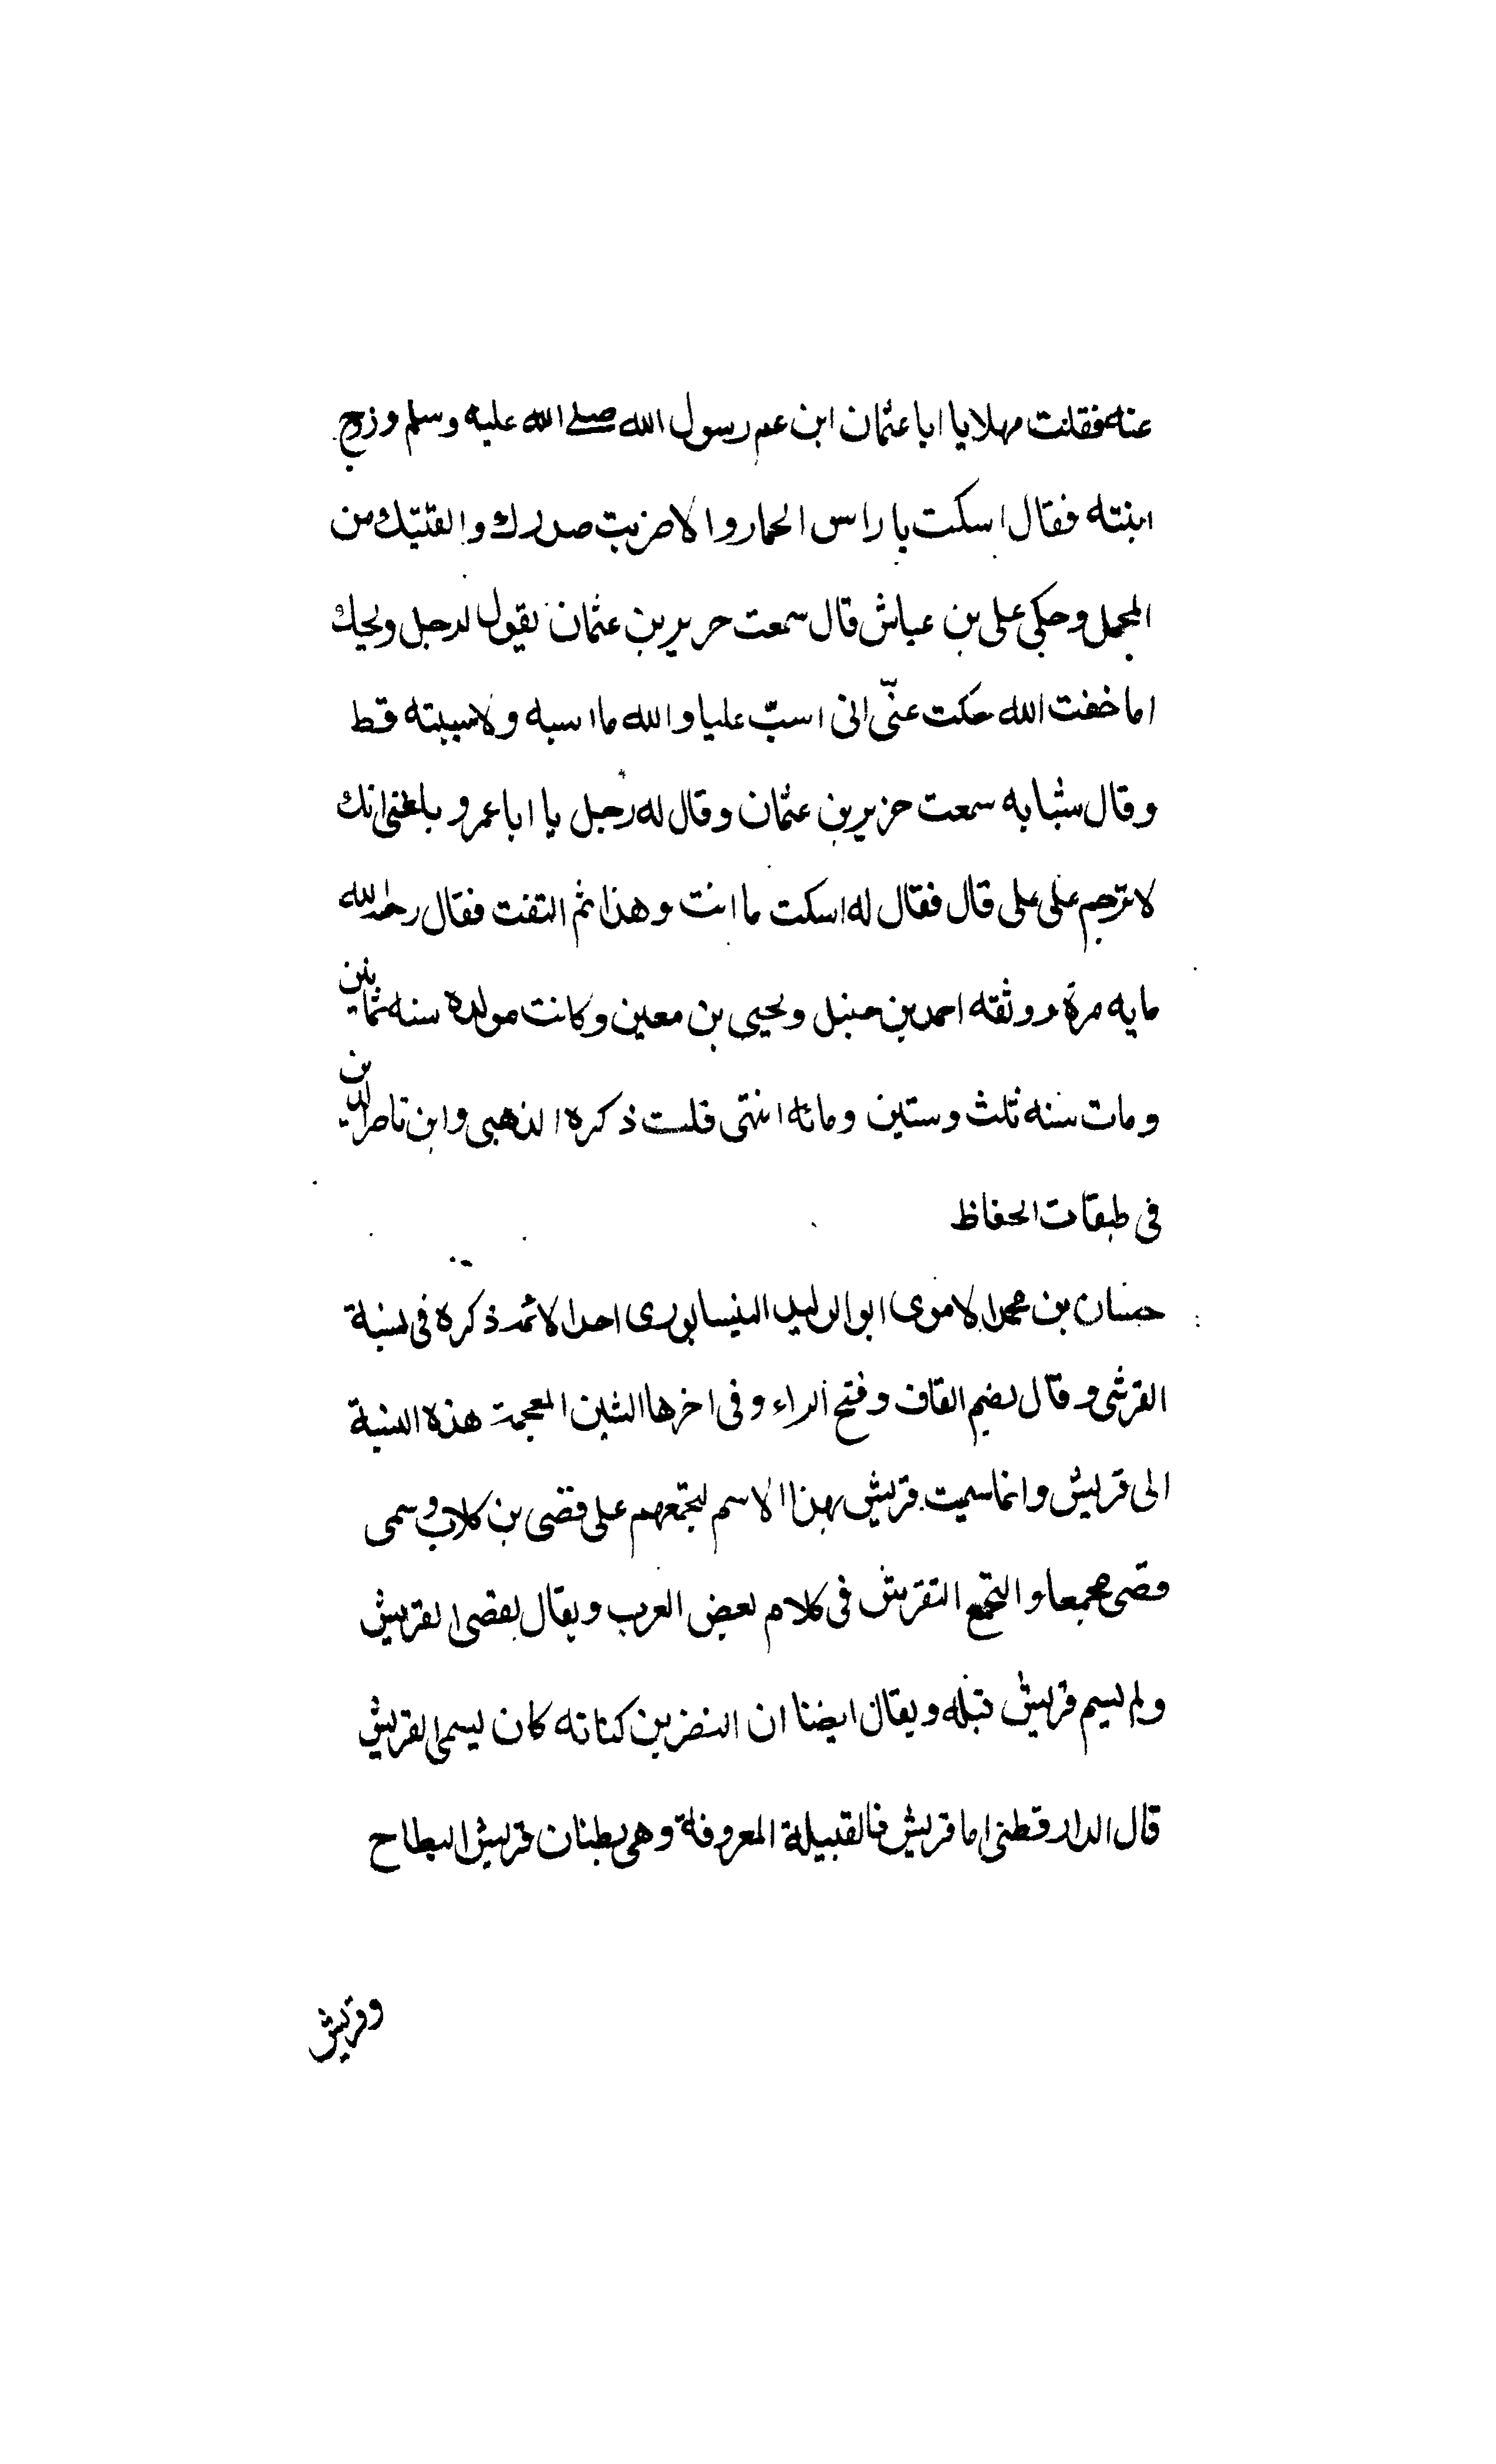 عنه فقلت مهلا يا ابا عثمان ابن عم رسول الله صلے الله عليه وسلم وزوج
ابنته فقال اسكت يا راس الحمار والا ضربت صدرك والقتيك من
المجمل وحكى على بن عياش قال سمعت حريز بن عثمان يقول لرجل ويحك
اما خفت الله حكت عنّى انى اسبّ عليا والله ما اسبه ولا سببته قط
وقال شبابه سمعت حريز بن عثمان وقال له رجل يا ابا عمرو بلغنى انك
لا ترحم على على قال فقال له اسكت ما انت وهذا ثم التفت فقال رحمه الله
مايه مرة ووثقه احمد بن حنبل ويحيى بن معين وكانت مولده سنه ثمانين
ومات سنه ثلث وستين ومائه انتهى قلت ذكره الذهبى وابن ناصر الدين
فى طبقات الحفاظ
حسان بن محمد الاموى ابو الوليد النيسابورى احد الائمه ذكره فى نسبة
القرشى وقال بضم القاف وفتح الراء وفى اخرها الشين المعجمة هذه النسبة
الى قريش وانما سميت قريش بهذا الاسم لتجمعهم على قصى بن كلاب وسمى
قصى مجمعا والتجمع التقريش فى كلام بعض العرب ويقال لقصى القريش
ولم يسم قريش قبله ويقال ايضا ان النضر بن كنانه كان يسمى القريش
قال الدارقطنى اما قريش فالقبيلة المعروفة وهى بطنان قريش البطاح
وقريش